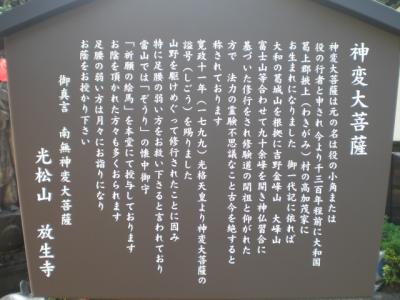 神変大菩薩
神変大菩薩は元の名は役の小角または
役の行者と申され今より千三百年程前に大和国
葛上郡掖上(わきがみ)村の高加茂家に
お生まれになりました 御一代記に依れば
大和の葛城山を根拠に吉野金峰山 大峰山
富士山等合わせて九十余峰を開き神仏習合に
基づいた修行をされ修験道の開祖と仰がれた
方で 法力の霊験不思議なこと古今を絶すると
称されております
寛政十一年(一七九九)光格天皇より神変大菩薩の
諡号(しごう)を賜りました
山野を駆けめぐって修行されたことに因み
特に足腰の弱い方をお救い下さると言われており
當山では「ぞうり」の懐中御守
「祈願の絵馬」を本堂にて授与しております
お陰を頂かれた方々も多くおられます
足腰の弱い方は月々にお詣りになり
お蔭をお授かり下さい
御真言 南無神変大菩薩
光松山 放生寺